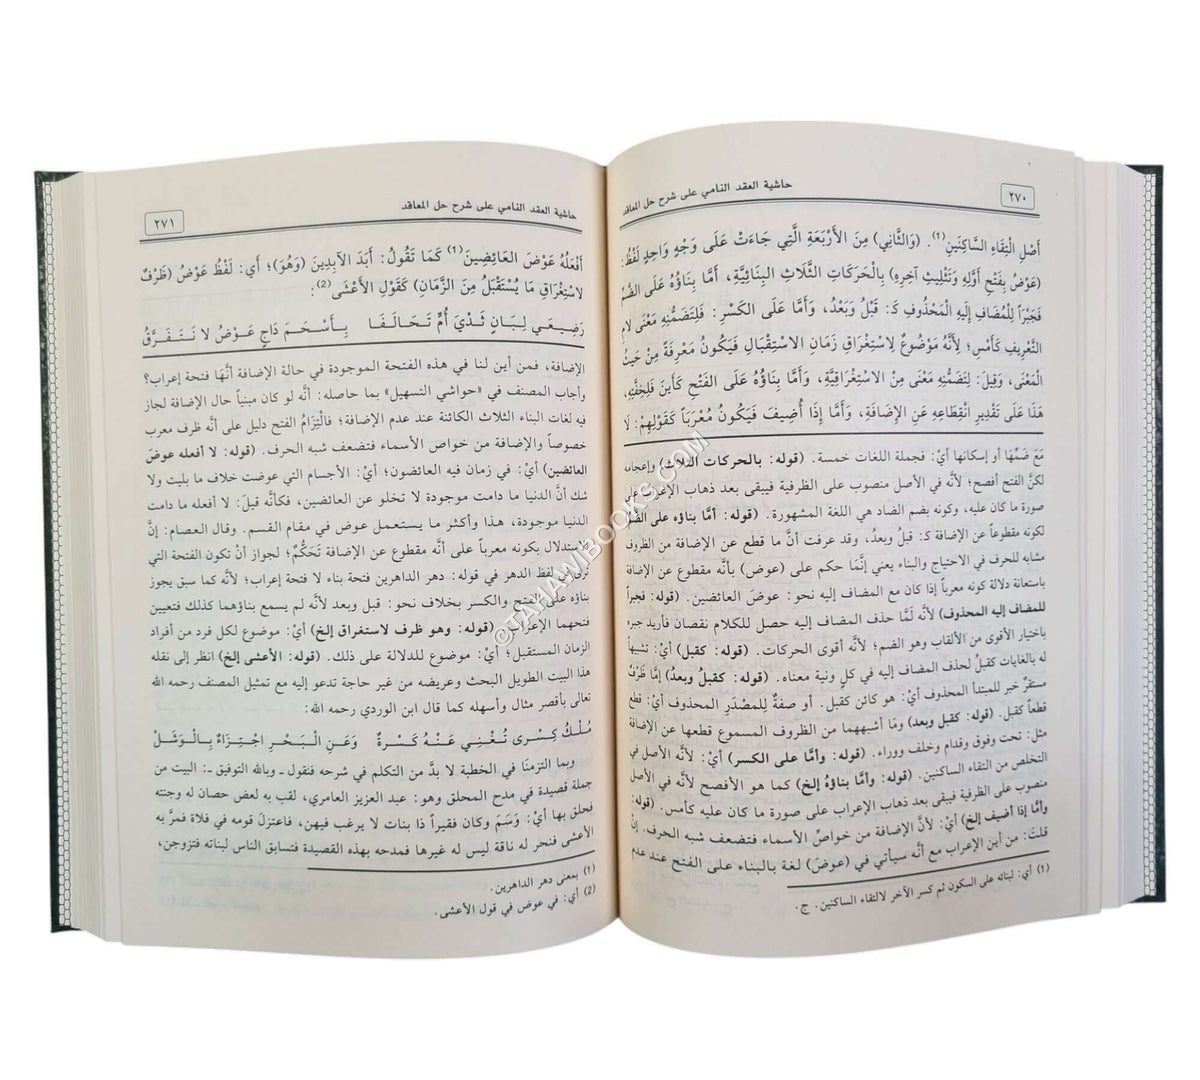 ٢٧٠
حاشية العقد النامي على شرح حل المعاقد
أَصْلِ الْتِقَاءِ السَّاكِنَينِ(١). (وَالثَّانِي) مِنَ الأَرْبَعَةِ الَّتِي جَاءَتْ عَلَى وَجْهٍ وَاحِدٍ لَفْظُ:
(عَوْضُ بِفَتْحِ أَوَّلِهِ وَتَثْلِيثِ آخِرِهِ) بِالْحَرَكَاتِ الثَّلَاثِ الْبِنَائِيَّةِ، أَمَّا بِنَاؤُهُ عَلَى الضَّمِّ
فَجَبْراً لِلْمُضَافِ إِلَيهِ الْمَحْذُوفِ كَـ: قَبْلُ وَبَعْدُ، وَأَمَّا عَلَى الْكَسْرِ: فَلِتَضَمُّنِهِ مَعْنَى لَامِ
التَّعْرِيفِ كَأَمْسِ؛ لِأَنَّهُ مَوْضُوعٌ لِاسْتِغْرَاقِ زَمَانِ الِاسْتِقْبَالِ فَيَكُونُ مَعْرِفَةً مِنْ حَيثُ
الْمَعْنَى، وَقِيلَ: لِتَضَمُّنِهِ مَعْنَى مِنْ الِاسْتِغْرَاقِيَّةِ، وَأَمَّا بِنَاؤُهُ عَلَى الْفَتْحِ كَأَينَ فَلِخِفَّتِهِ،
هَذَا عَلَى تَقْدِيرِ انْقِطَاعِهِ عَنِ الإِضَافَةِ، وَأَمَّا إِذَا أُضِيفَ فَيَكُونُ مُعْرَباً كَقَوْلِهِمْ: لَا
مَعَ ضَمِّهَا أو إسكانها أيْ: فجملة اللغات خمسة. (قوله: بالحركات الثلاث) وإعجامه
لكنَّ الفتح أفصح؛ لأنَّه في الأصل منصوب على الظرفية فيبقى بعد ذهاب الإعراب على
صورة ما كان عليه، وكونه بضم الضاد هي اللغة المشهورة. (قوله: أمَّا بناؤه على الضم)
لكونه مقطوعاً عن الإضافة كـ: قبلُ وبعدُ، وقد عرفت أنَّ ما قطع عن الإضافة من الظروف
مشابه للحرف في الاحتياج والبناء يعني إنَّما حكم على (عوض) بأنَّه مقطوع عن الإضافة
باستعانة دلالة كونه معرباً إذا كان مع المضاف إليه نحو: عوضَ العائضين. (قوله: فجبراً
للمضاف إليه المحذوف) لأنَّه لَمَّا حذف المضاف إليه حصل للكلام نقصان فأريد جبره
باختيار الأقوى من الألقاب وهو الضم؛ لأنَّه أقوى الحركات. (قوله: كقبل) أيْ: تشبيهاً
له بالغايات كقبلُ لحذف المضاف إليه في كل ونية معناه. (قوله: كقبلُ وبعدُ) إمَّا ظَرْفٌ
مستقرٌ خبر للمبتدأ المحذوف أيْ: هو كائن كقبل. أو صفةٌ لِلمصْدَرِ المحذوف أيْ: قطع
قطعاً كقبل. (قوله: كقبل وبعد) ومَا أشبههما من الظروف المسموع قطعها عن الإضافة
مثل: تحت وفوق وقدام وخلف ووراء. (قوله: وأمَّا على الكسر) أيْ: لأنَّه الأصل في
التخلص من التقاء الساكنين. (قوله: وأمَّا بناؤهُ إلخ) كما هو الأفصح لأنَّه في الأصل
منصوب على الظرفية فيبقى بعد ذهاب الإعراب على صورة ما كان عليه كأمس. (قوله:
وأمَّا إذا أضيف إلخ) أيْ: لأنَّ الإضافة من خواصِّ الأسماء فتضعف شبه الحرف. إنْ
قلتَ: من أين الإعراب مع أنَّه سيأتي في (عوضَ) لغة بالبناء على الفتح عند عدم
(١) أي: لبنائه على السكون ثم كسر الآخر لالتقاء الساكنين. ج.
حاشية العقد النامي على شرح حل المعاقد
٢٧١
أَفْعَلُهُ عَوْضَ العَائِضِينَ(١) كَمَا تَقُولُ: أَبَدَ الآبِدِينَ (وَهُوَ)؛ أَي: لَفْظُ عَوْضُ (ظَرْفٌ
لاسْتِغْرَاقِ مَا يُسْتَقْبَلُ مِنَ الزَّمَانِ) كَقَولِ الأَعْشَى(٢):
رَضِيعَي لِبَانٍ ثَدْيَ أُمٍّ تَحَالَفَا بِأَسْحَمَ دَاجٍ عَوْضُ لا نَتَفَرَّقُ
الإضافة، فمن أين لنا في هذه الفتحة الموجودة في حالة الإضافة أنَّها فتحة إعراب؟
وأجاب المصنف في «حواشي التسهيل» بما حاصله: أنَّه لو كان مبنياً حال الإضافة لجاز
فيه لغات البناء الثلاث الكائنة عند عدم الإضافة؛ فالْتِزَامُ الفتح دليل على أنَّه ظرف معرب
خصوصاً والإضافة من خواص الأسماء فتضعف شبه الحرف. (قوله: لا أفعله عوضَ
العائضين) أيْ: في زمان فيه العائضون؛ أيْ: الأجسام التي عوضت خلاف ما بليت ولا
شك أنَّ الدنيا ما دامت موجودة لا تخلو عن العائضين، فكأنَّه قيلَ: لا أفعله ما دامت
الدنيا موجودة، هذا وأكثر ما يستعمل عوض في مقام القسم. وقال العصام: إنَّ
الاستدلال بكونه معرباً على أنَّه مقطوع عن الإضافة تَحَكُّمٌ؛ لجواز أنْ تكون الفتحة التي
ترى في لفظ الدهر في قوله: دهر الداهرين فتحة بناء لا فتحة إعراب؛ لأنَّه كما سبق يجوز
بناؤه على الفتح والكسر بخلاف نحو: قبل وبعد لأنَّه لم يسمع بناؤهما كذلك فتعين
فتحهما الإعراب. (قوله: وهو ظرف لاستغراق إلخ) أيْ: موضوع لكل فرد من أفراد
الزمان المستقبل؛ أيْ: موضوع للدلالة على ذلك. (قوله: الأعشى إلخ) انظر إلى نقله
هذا البيت الطويل البحث وعريضه من غير حاجة تدعو إليه مع تمثيل المصنف رحمه الله
تعالى بأقصر مثال وأسهله كما قال ابن الوردي رحمه الله:
مُلْكُ كِسْرى تُغْنِي عَنْهُ كَسْرةٌ وَعَنِ الْبَحْرِ اجْتِزَاءٌ بِالْوَشَلْ
وبما التزمنَا في الخطبة لا بدَّ من التكلم في شرحه فنقول ـ وبالله التوفيق ـ: البيت من
جملة قصيدة في مدح المحلق وهو: عبد العزيز العامري، لقب به لعض حصان له وجنته
فحلق بها أيْ: وَسَمَ وكان فقيراً ذا بنات لا يرغب فيهن، فاعتزلَ قومه في فلاة فمرَّ به
الأعشى فنحر له ناقة ليس له غيرها فمدحه بهذه القصيدة فتسابق الناس لبناته فتزوجن،
(١) بمعنى دهر الداهرين.
(٢) أي: في عوض في قول الأعشى.
©TAHAWIBOOKS.COM